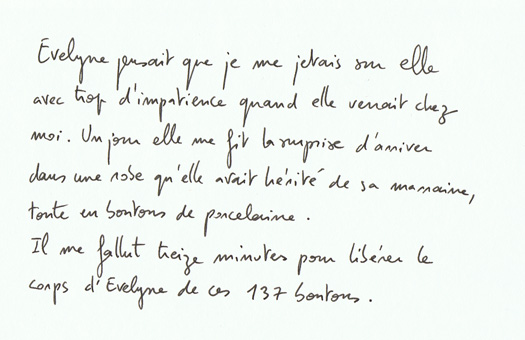 Evelyne pensait que je me jetais sur elle
avec trop d'impatience quand elle venait chez
moi. Un jour elle me fit la surprise d'arriver
dans une robe qu'elle avait hérité de sa marraine,
toute en boutons de porcelaine.
Il me fallut treize minutes pour libérer le
corps d'Evelyne de ces 137 boutons.